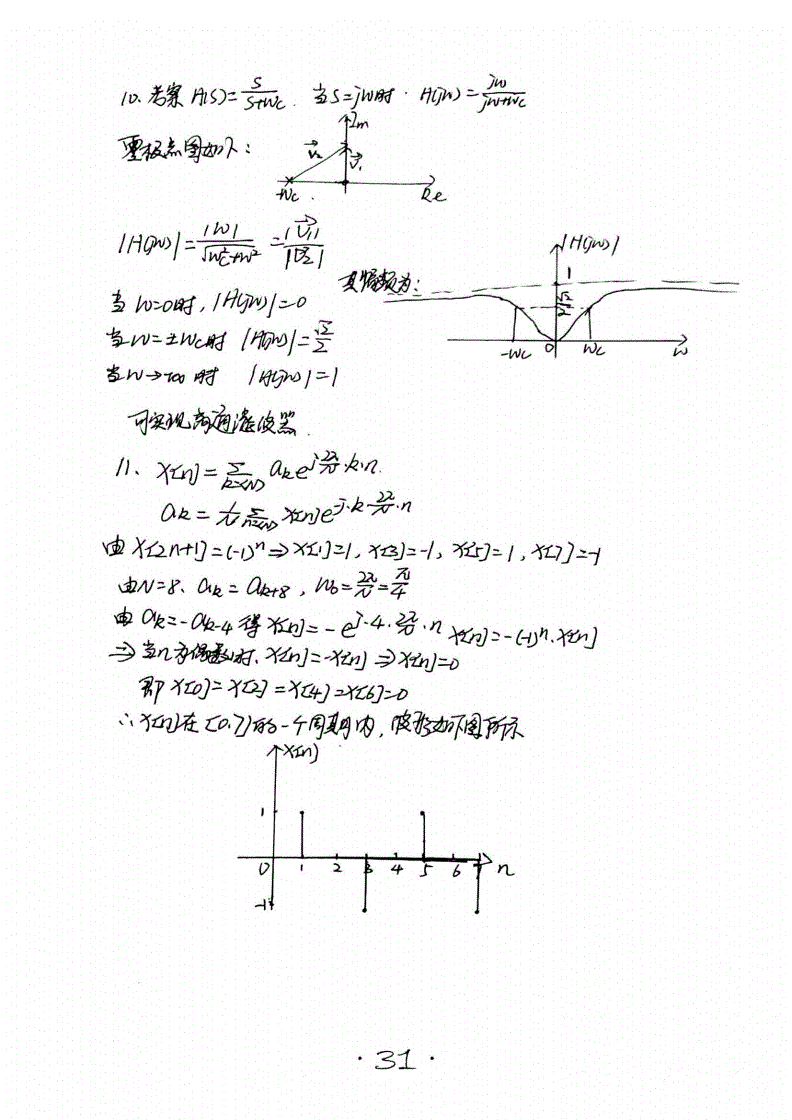 10. 考察 H(s)=\frac{s}{s+wc}. 当s=jw时. H(jw)=\frac{jw}{jw+wc}
零极点图如下:
Im
\vec{v_2}
\vec{v_1}
-wc
Re
|H(jw)|=\frac{|w|}{\sqrt{wc^2+w^2}}=\frac{|\vec{v_1}|}{|\vec{v_2}|}
其幅频为:
|H(jw)|
1
\frac{\sqrt{2}}{2}
-wc 0 wc w
当 w=0时, |H(jw)|=0
当w=±wc时 |H(jw)|=\frac{\sqrt{2}}{2}
当w→±∞时 |H(jw)|=1
可实现高通滤波器.
11、 x[n]=\sum_{k=<N>} a_k e^{j\frac{2π}{N}·k·n}.
a_k=\frac{1}{N}\sum_{n=<N>} x[n]e^{-j·k·\frac{2π}{N}·n}
由 x[2n+1]=(-1)^n⇒x[1]=1, x[3]=-1, x[5]=1, x[7]=-1
由N=8、a_k=a_{k+8}, w_0=\frac{2π}{N}=\frac{π}{4}
由 a_k=-a_{k-4} 得 x[n]=-e^{j·4·\frac{2π}{N}·n} x[n]=-(-1)^n·x[n]
⇒当n为偶数时、x[n]=-x[n]⇒x[n]=0
即 x[0]=x[2]=x[4]=x[6]=0
∴x[n]在[0.7]的一个周期内, 波形如下图所示
x[n]
1
0 1 2 3 4 5 6 7 n
-1
· 31 ·